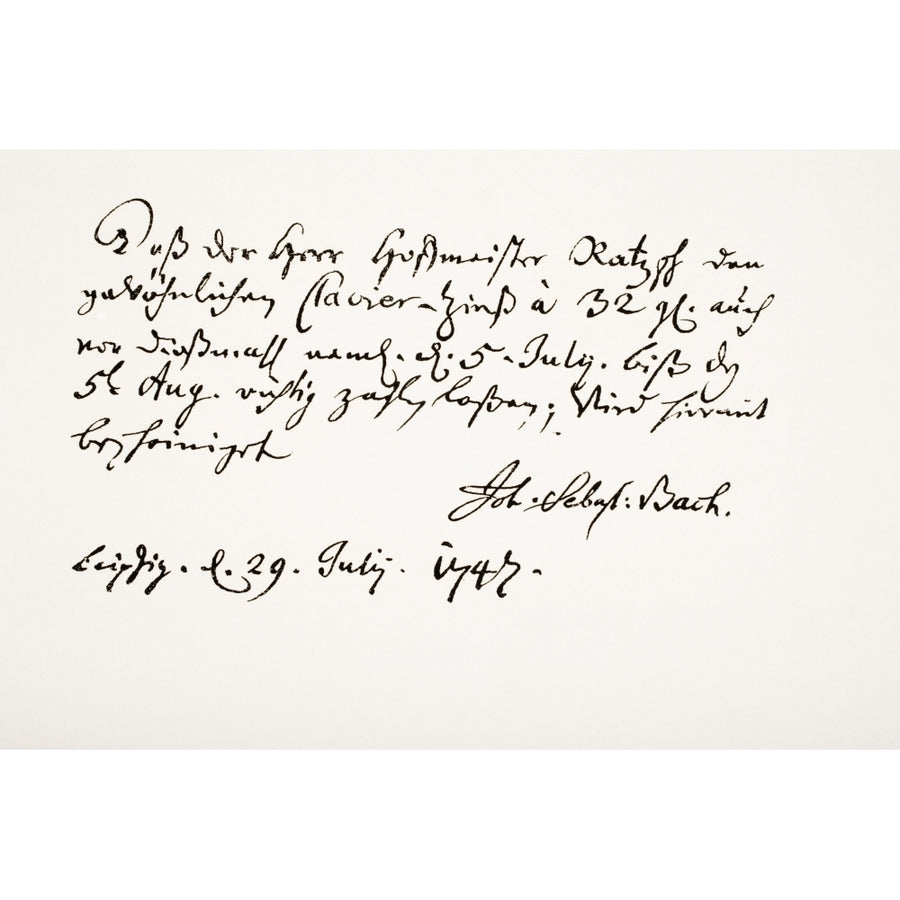 Daß der Herr Hoffmeister Ratzsch den
gewöhnlichen Clavier-Zinß à 32 gl. auch
vor dießmahl neml. d. 5. July. biß d.
5t Aug. richtig zahlen laßen; Wird hiermit
bescheiniget
Joh. Sebast: Bach.
Leipzig. d. 29. July. 1747.